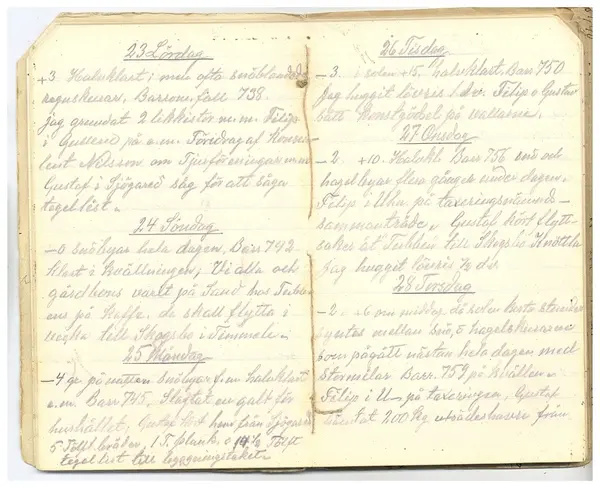 23 Lördag
+3 Halvklart i men ofta snöblandade
regnskurar. Barom. fall 738.
jag grundat 2 likkistor m.m. Filip
i Gullered på e.m. Föredrag af Konsu-
lent Nilsson om Tjurföreningar m.m
Gustaf i Sjögared såg för att såga
tegelläst.
24 Söndag
-0 snöbyar hela dagen, Barr 742
klart i kvällningen, Vi alla och
gårdbons varit på Sand hos
ens på Kaffe. de skall flytta i
vecka till Skogsbo i Timmele.
25 Måndag
-4 gr på natten snöbyar f.m. halvklart
e.m. Barr 745. Slagtat en galt för
hushållet; Gustaf kört hem från Sjögared
5 Tolft. bräder, 1 T. plank. o 14½ Tolft
tegellist till byggningstaket.
26 Tisdag
-3. i solen +15. halvklart. Barr 750
Jag huggit lövris 1 dv. Filip o Gustav
sått Konstgödsel på vallarne.
27 Onsdag
-2. +10. Halvkl. Barr 756 snö och
hagelbyar flera gånger under dagen.
Filip i Ulra på taxeringsnämnd-
sammanträde. Gustaf kört flytt-
saker åt till Skogsbo Knätte
Jag huggit lövris ½ dv.
28 Torsdag
-2. +6 om middag, då solen korta stunder
syntes mellan snö, o hagelskurarne
som pågått nästan hela dagen med
stormilar Barr. 759 på kvällen.
Filip i U. på taxeringen, Gustaf
hämtat 200 Kg utsädeshavre från